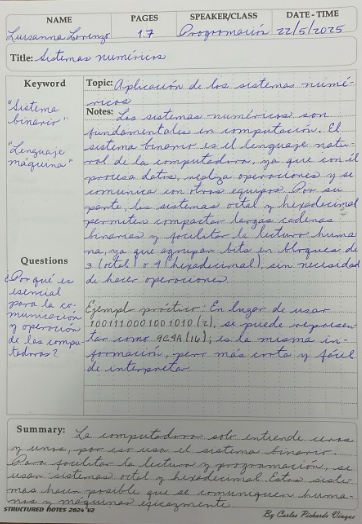 NAME PAGES SPEAKER/CLASS DATE - TIME
Luisanna Lorenzo 17 Programación 22/5/2025
Title: Sistemas numéricos
Keyword
"Sistema
binario"
"Lenguaje
máquina"
Questions
¿Por qué es
esencial
para la co-
municación
y operación
de las compu-
tadoras?
Topic: Aplicación de los sistemas numé-
ricos
Notes: Los sistemas numéricos son
fundamentales en computación. El
sistema binario es el lenguaje natu-
ral de la computadora, ya que con él
procesa datos, realiza operaciones y se
comunica con otros equipos. Por su
parte, los sistemas octal y hexadecimal
permiten compactar largas cadenas
binarias y facilitar la lectura huma
na, ya que agrupan bits en bloques de
3 (octal) o 4 (hexadecimal), sin necesidad
de hacer operaciones.
Ejemplo práctico: En lugar de usar
(2), se puede represen
tar como (16); es la misma in-
formación, pero más corta y fácil
de interpretar.
Summary: La computadora solo entiende ceros
y unos, por eso usa el sistema binario.
Para facilitar la lectura y programación, se
usan sistemas octal y hexadecimal. Estos siste-
mas hacen posible que se comuniquen huma-
nos y máquinas eficazmente.
STRUCTURED NOTES 2024 V2
By Carlos Pichardo Vinque